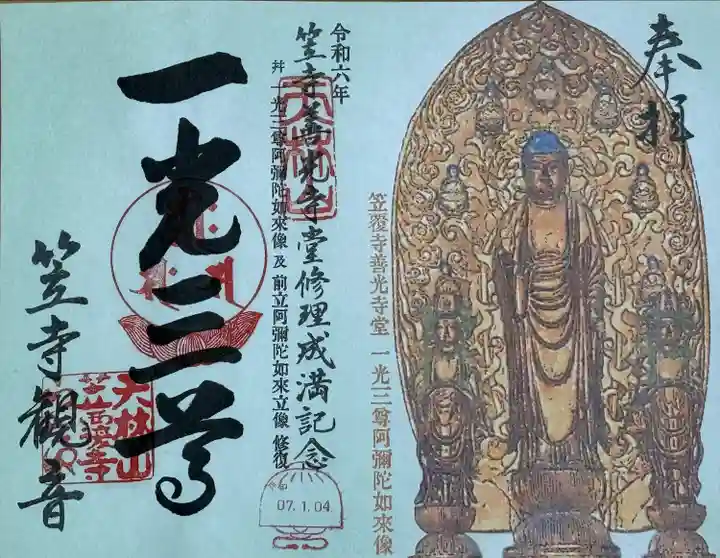 奉拝
笠覆寺善光寺堂 一光三尊阿彌陀如來像
令和六年
笠寺善光寺堂修理成満記念
并 一光三尊阿彌陀如來像 及 前立阿彌陀如來立像 修復
天林山
07.1.04
一光三尊
笠寺観音
天林山
笠覆寺